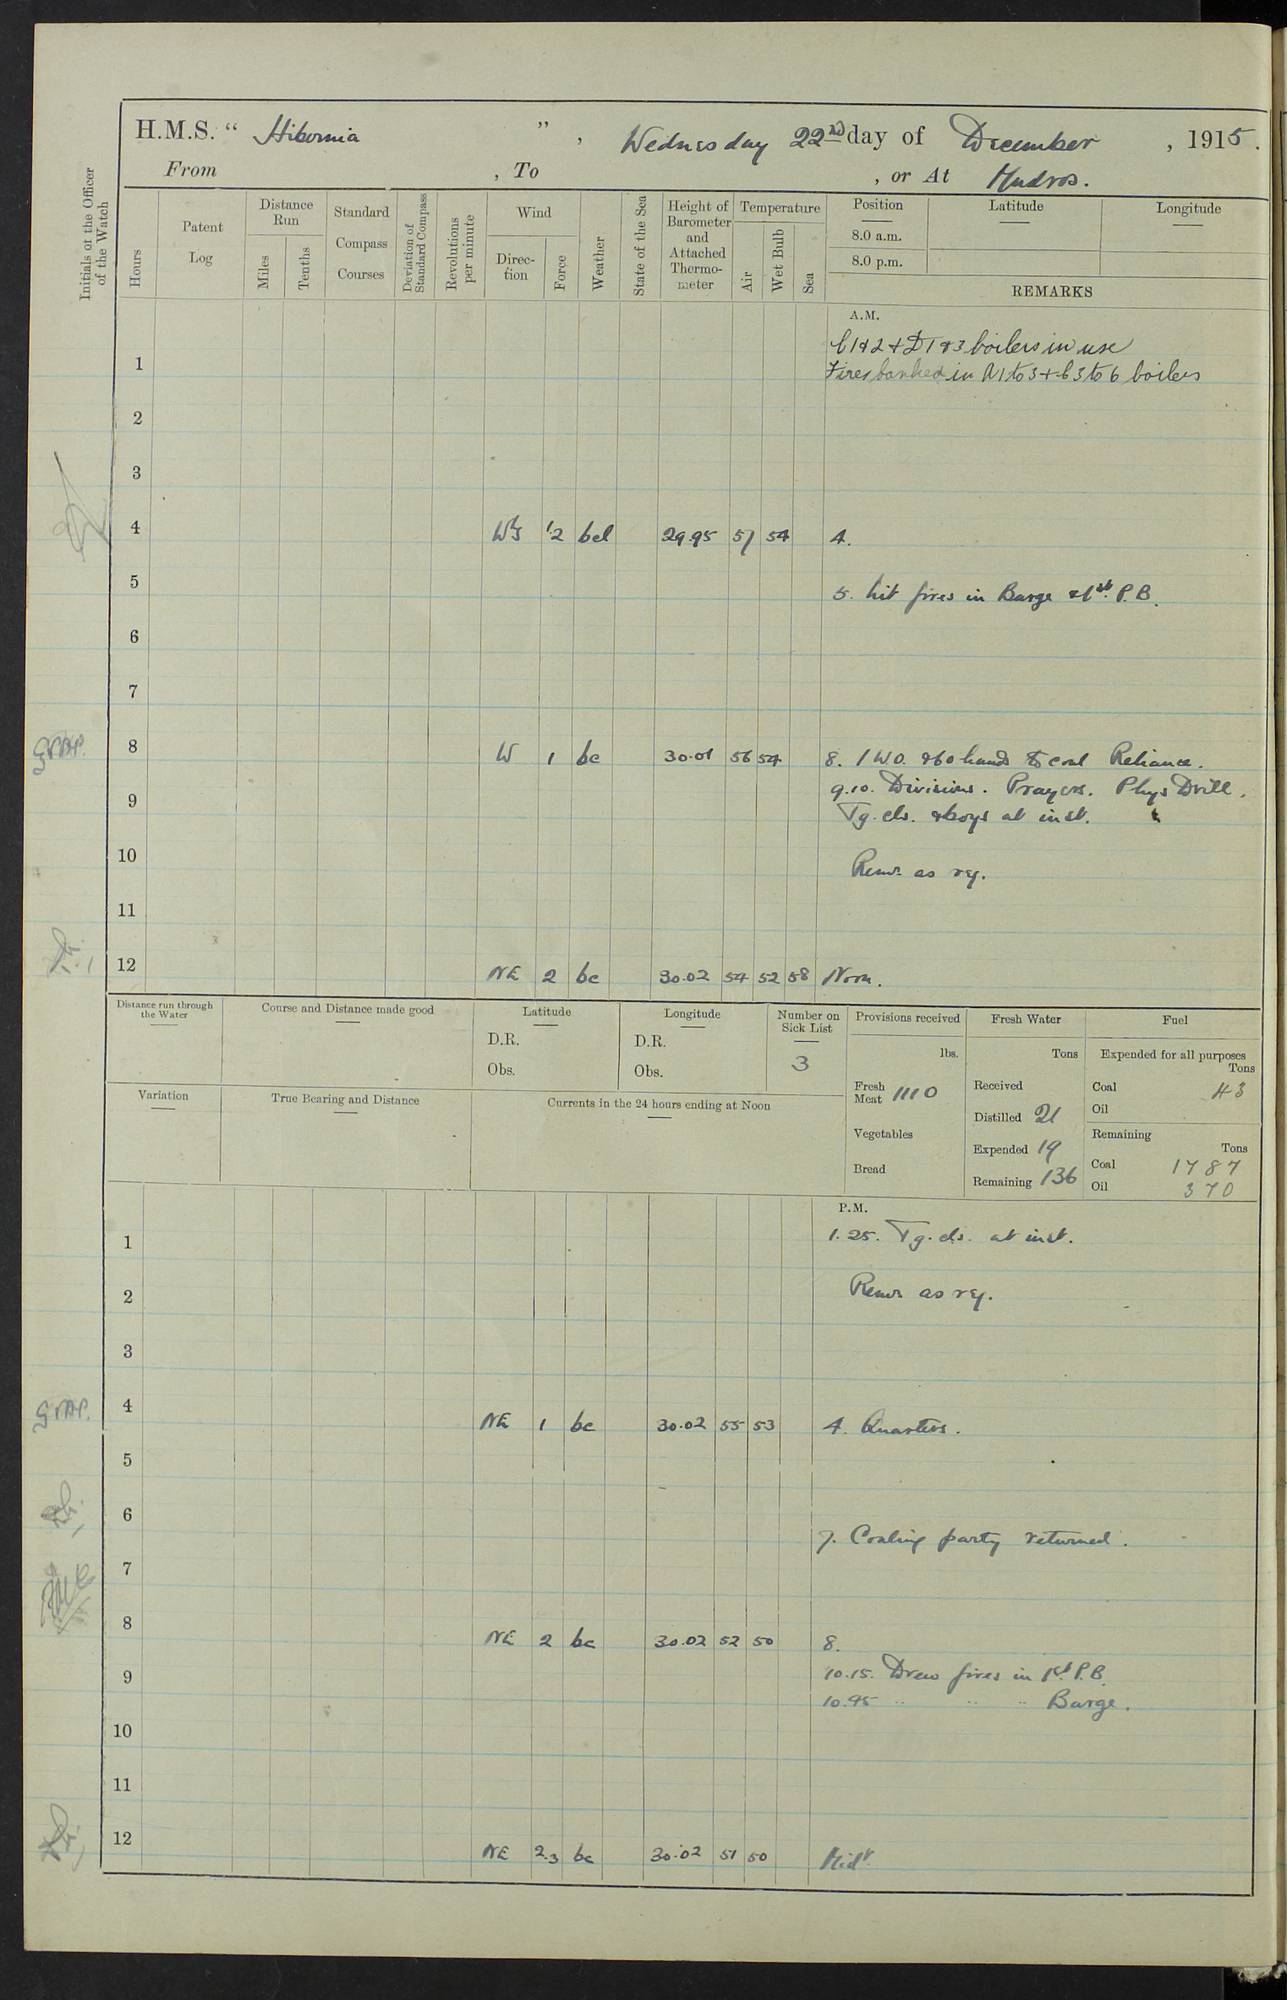 H.M.S. " Hibernia ", Wednesday 22nd day of December, 1915.
From , To , or At Mudros.
Initials of the Officer of the Watch
Hours
Patent Log
Distance Run
Miles
Tenths
Standard Compass Courses
Deviation of Standard Compass
Revolutions per minute
Wind
Direction
Force
Weather
State of the Sea
Height of Barometer and Attached Thermometer
Temperature
Air
Wet Bulb
Sea
Position
Latitude
Longitude
8.0 a.m.
8.0 p.m.
REMARKS
A.M.
C 1 & 2 + D 1 & 3 boilers in use
1 Fires banked in A 1 to 3 + C 3 to 6 boilers
2
3
4 1.2 bcl 29.95 57 54 4.
5 5. Lit fires in Barge & 1st P.B.
6
7
8 W 1 bc 30.01 56 54 8. 1 W.O. & 60 hands to coal Reliance.
9.10. Divisions. Prayers. Phys Drill.
9 Tg. cls. & boys at inst.
10 Remr. as req.
11
12 NE 2 bc 30.02 54 52 58 Noon.
Distance run through the Water
Course and Distance made good
Latitude
D.R.
Obs.
Longitude
D.R.
Obs.
Number on Sick List
3
Provisions received
lbs.
Fresh Meat 1110
Vegetables
Bread
Fresh Water
Tons
Received
Distilled 21
Expended 19
Remaining 136
Fuel
Expended for all purposes
Tons
Coal 43
Oil
Remaining
Tons
Coal 1787
Oil 370
Variation
True Bearing and Distance
Currents in the 24 hours ending at Noon
P.M.
1 1.25. Tg. cls. at inst.
2 Remr. as req.
3
4 NE 1 bc 30.02 55 53 4. Quarters.
5
6
7. Coaling party returned.
7
8 NE 2 bc 30.02 52 50 8.
9 10.15. Drew fires in 1st P.B.
10.45 " " " Barge.
10
11
12 NE 2.3 bc 30.02 51 50 Midt.